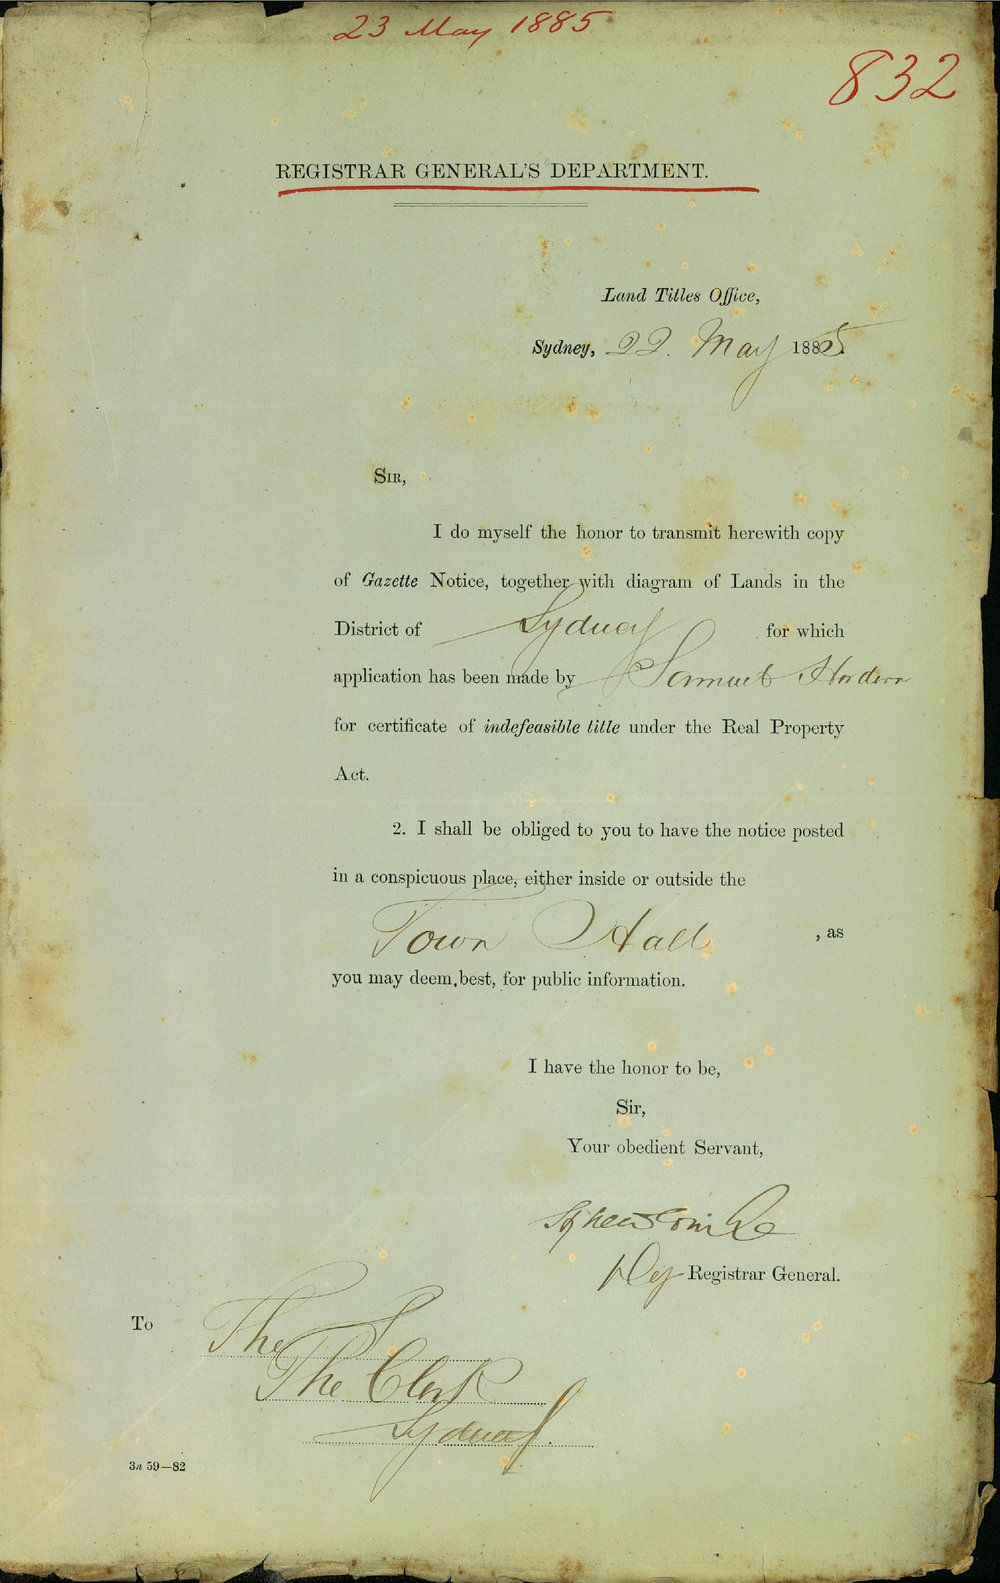 23 May 1885
832
REGISTRAR GENERAL'S DEPARTMENT.
Land Titles Office,
Sydney, 22. May 1885.
SIR,
I do myself the honor to transmit herewith copy
of Gazette Notice, together with diagram of Lands in the
District of Sydney for which
application has been made by Samuel Hordern
for certificate of indefeasible title under the Real Property
Act.
2. I shall be obliged to you to have the notice posted
in a conspicuous place, either inside or outside the
Town Hall , as
you may deem best, for public information.
I have the honor to be,
Sir,
Your obedient Servant,
Dey Registrar General.
To
The
The Clerk
Sydney.
3a 59—82